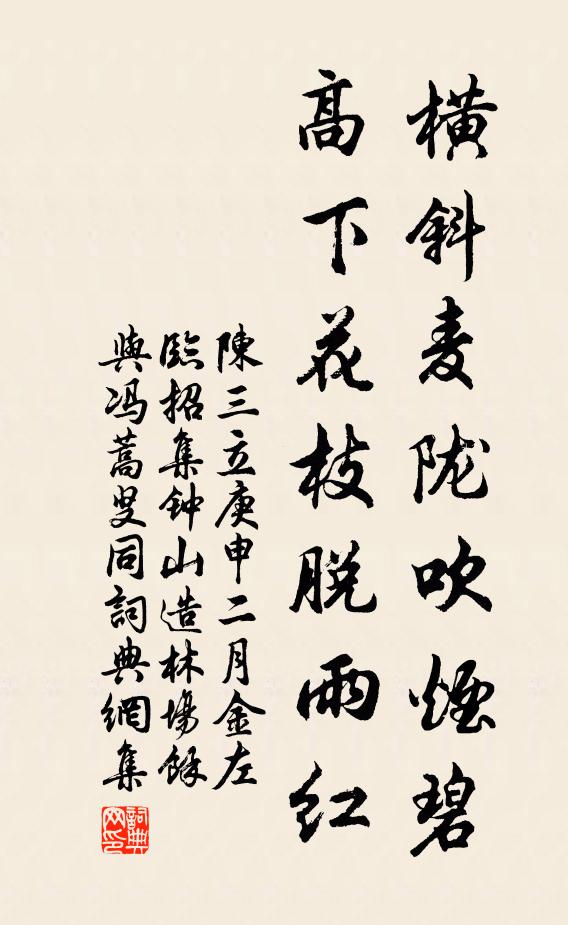 橫斜麦陇吹煙碧
高下花枝脱雨红
陳三立庚申二月金左
臨招集钟山造林場餘
與冯蒿叟同詞典網集
詞典网印